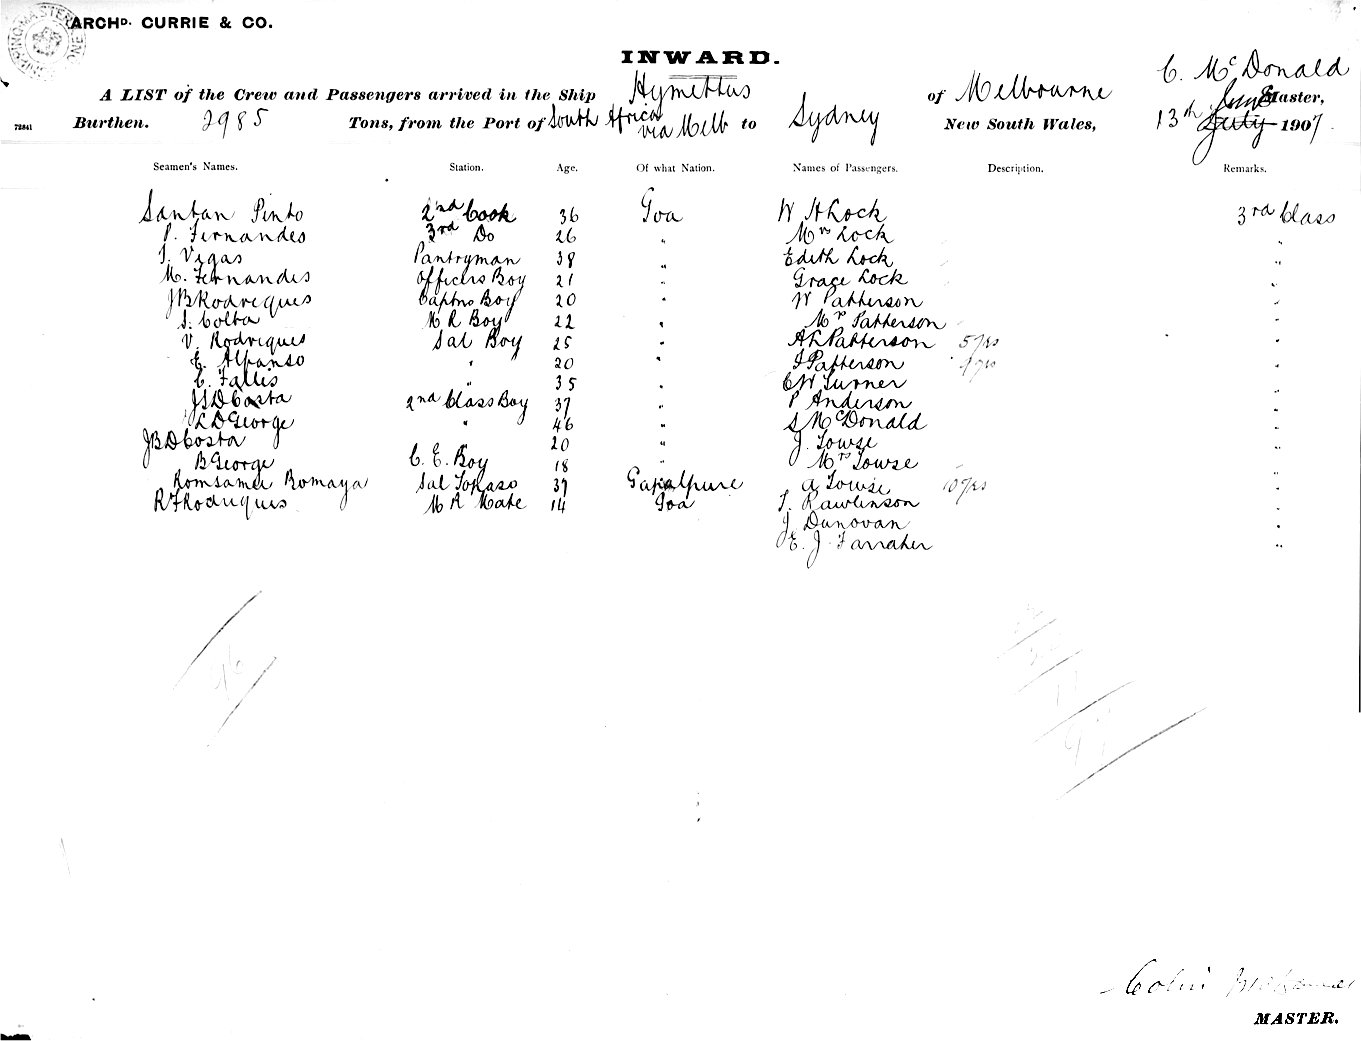 ARCHD. CURRIE & CO.
INWARD.
C. McDonald
A LIST of the Crew and Passengers arrived in the Ship Hymettus of Melbourne Master,
72841 Burthen. 2985 Tons, from the Port of South Africa via Melb to Sydney New South Wales, 13th July June 1907.
Seamen's Names. Station. Age. Of what Nation. Names of Passengers. Description. Remarks.
Santan Pinto 2nd Cook 36 Goa W H Lock 3rd Class
P. Fernandes 3rd Do 26 " Mrs Lock "
Vegas Pantryman 38 " Edith Lock "
M. Fernandis Officers Boy 21 " Grace Lock "
J B Rodriques Captns Boy 20 " W Patterson "
Colta M R Boy 22 " Mrs Patterson "
V. Rodriques Sal Boy 25 " A L Patterson 5 yrs "
E. Alfanso " 20 " Patterson yrs "
C. Fallis " 35 " C W Turner "
J S D Costa 2nd Class Boy 37 " P Anderson "
L D George " 46 " S McDonald "
J B D Costa " 20 " J. Towse "
B George C. E. Boy 18 " Mrs Towse "
Romsamee Romaya Sal Topaso 37 A Towse 10 yrs "
R F Rodriquis M R Mate 14 Goa T. Rawlinson "
J. Dunovan "
E. J. Farraher "
Colin
MASTER.